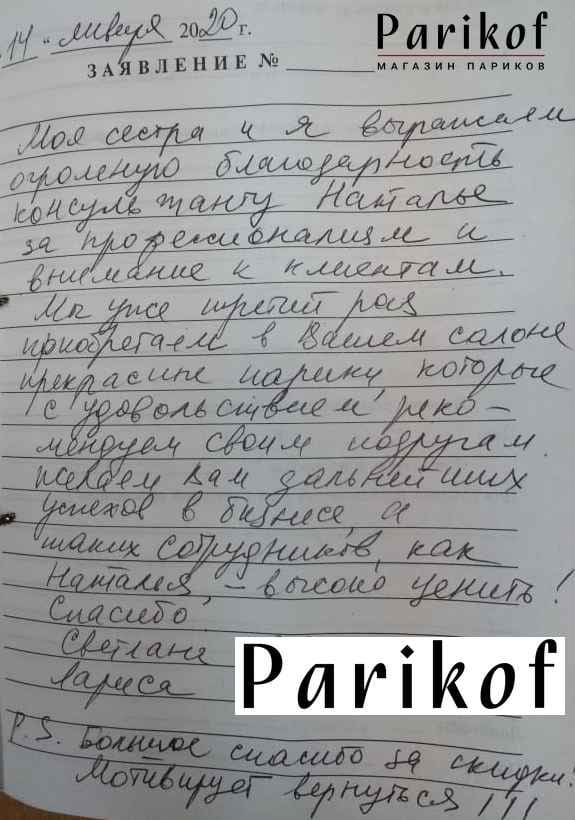 14 " января 2020 г.
Parikof
МАГАЗИН ПАРИКОВ
ЗАЯВЛЕНИЕ №
Моя сестра и я выражаем
огромную благодарность
консультанту Наталье
за профессионализм и
внимание к клиентам.
Мы уже третий раз
приобретаем в Вашем салоне
прекрасные парики, которые
с удовольствием реко-
мендуем своим подругам.
Желаем Вам дальнейших
успехов в бизнесе, а
таких сотрудников, как
Наталья, – высоко ценить!
Спасибо
Светлане
Лариса
Parikof
P.S. Большое спасибо за скидки!
Мотивирует вернуться!!!